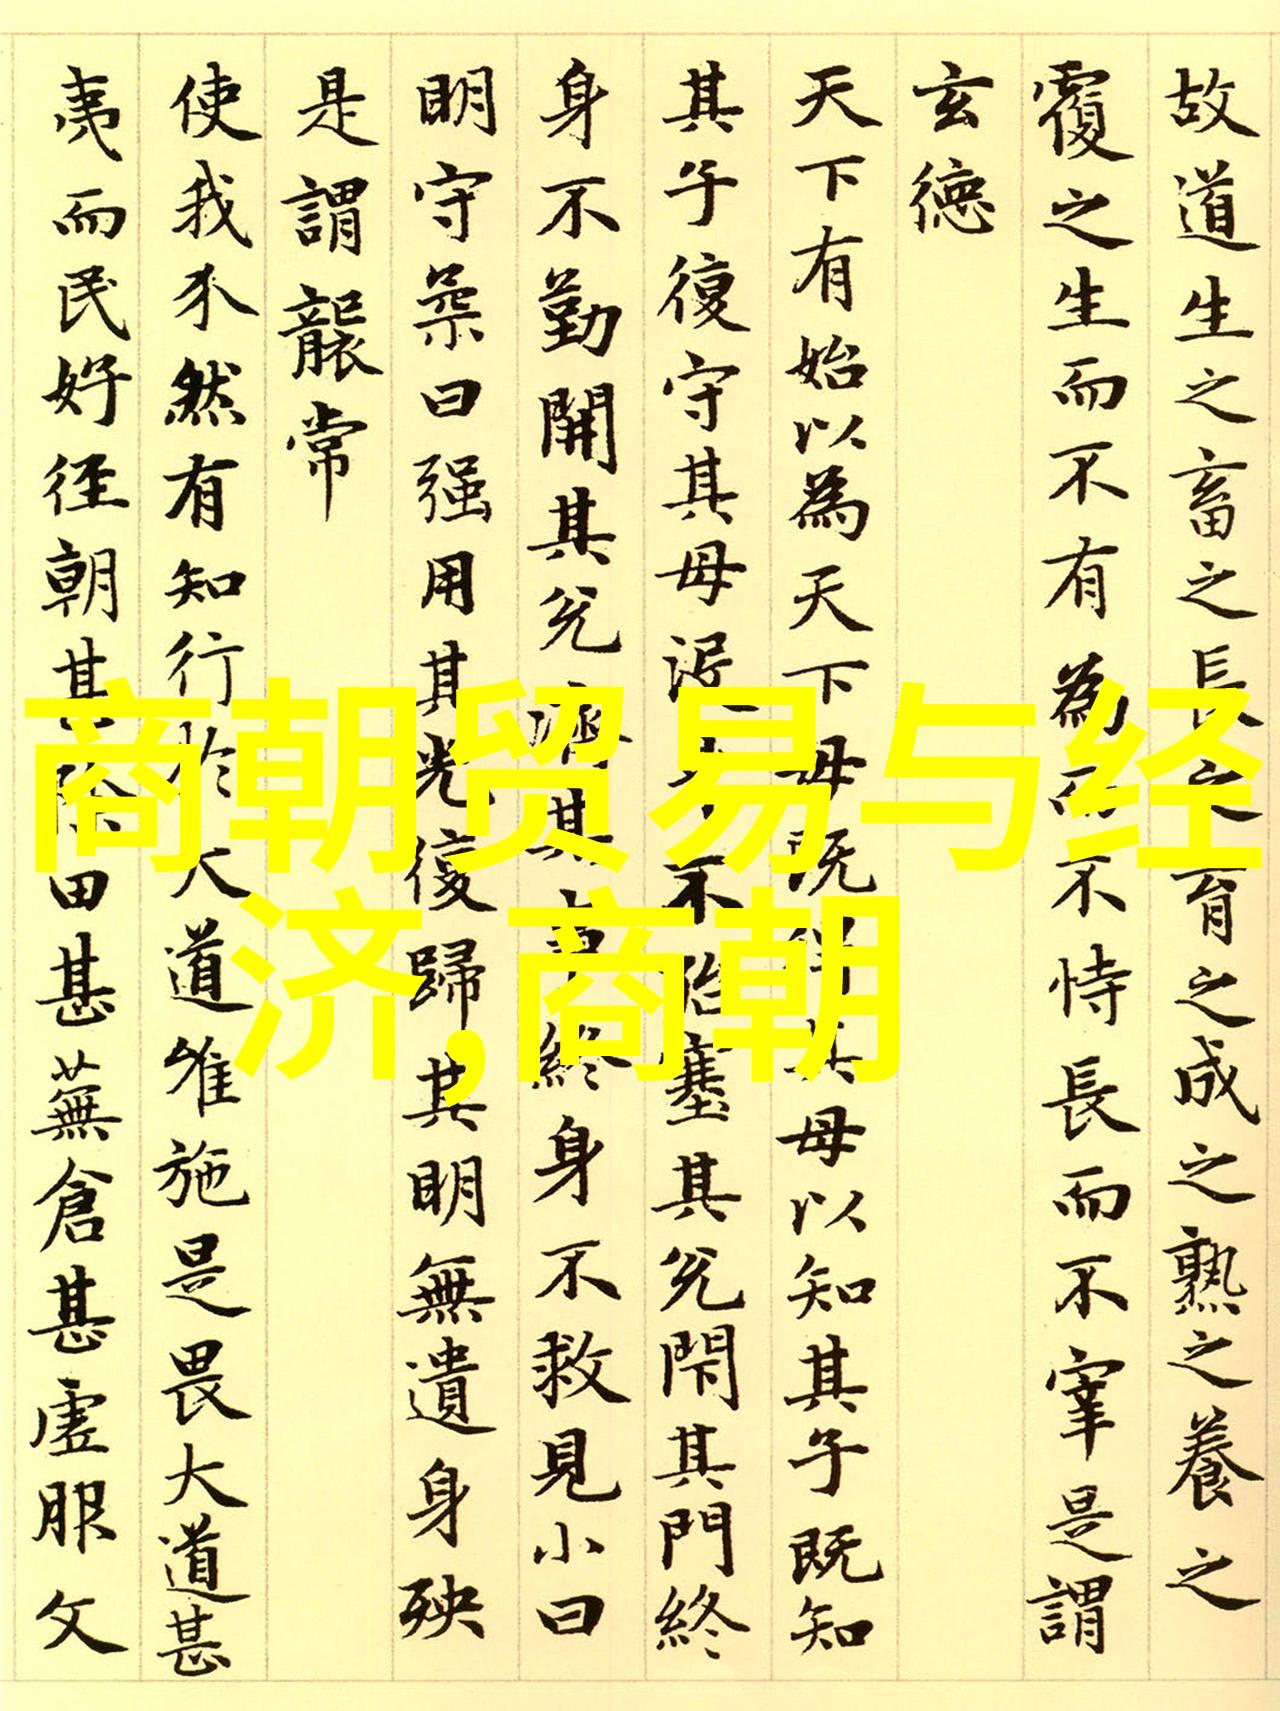 故道生之畜之長之育之成之熟之養之
覆之生而不有為而不恃長而不宰是謂
玄德
天下有始以為天下母既得其母以知其子既知
其子復守其母没身不殆塞其兊閇其門終
身不勤開其兊濟其事終身不救見小曰
明守柔曰强用其光復歸其明無遺身殃
是謂襲常
使我介然有知行於大道唯施是畏大道甚
夷而民好徑朝甚除田甚蕪倉甚虚服文
商朝贸易与经
济,商朝